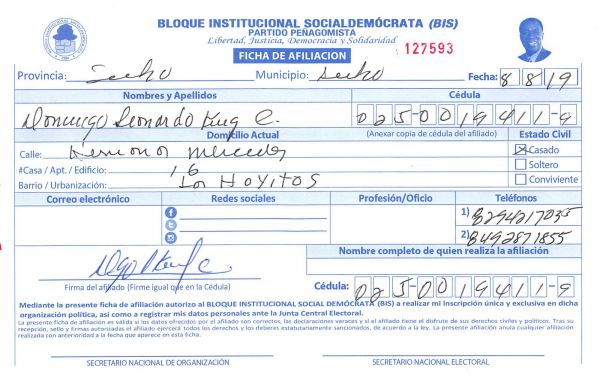 BLOQUE INSTITUCIONAL SOCIALDEMÓCRATA (BIS)
PARTIDO PEÑAGOMISTA
Libertad, Justicia, Democracia y Solidaridad
FICHA DE AFILIACION
127593
Provincia: Municipio: Fecha: 8 8 19
Nombres y Apellidos Cédula
Domingo Leonardo C. 025-0019411-9
Domicilio Actual (Anexar copia de cédula del afiliado) Estado Civil
Calle: Mercedes Casado
#Casa / Apt. / Edificio: 16 Soltero
Barrio / Urbanización: Los Hoyitos Conviviente
Correo electrónico Redes sociales Profesión/Oficio Teléfonos
1) 8294217035
2) 8492871855
Nombre completo de quien realiza la afiliación
Firma del afiliado (Firme igual que en la Cédula) Cédula: 025-0019411-9
Mediante la presente ficha de afiliación autorizo al BLOQUE INSTITUCIONAL SOCIAL DEMÓCRATA (BIS) a realizar mi inscripción única y exclusiva en dicha
organización política, así como a registrar mis datos personales ante la Junta Central Electoral.
La presente ficha de afiliación es valida si los datos ofrecidos por el afiliado son correctos, las declaraciones veraces y si el afiliado tiene el disfrute de sus derechos civiles y políticos. Tras su
recepción, sello y firmas autorizadas el afiliado ejercerá todos los derechos y los deberes estatutariamente sancionados, de acuerdo a la ley. La presente afiliación anula cualquier afiliación
realizada con anterioridad a la fecha que aparece en esta ficha.
SECRETARIO NACIONAL DE ORGANIZACIÓN SECRETARIO NACIONAL ELECTORAL